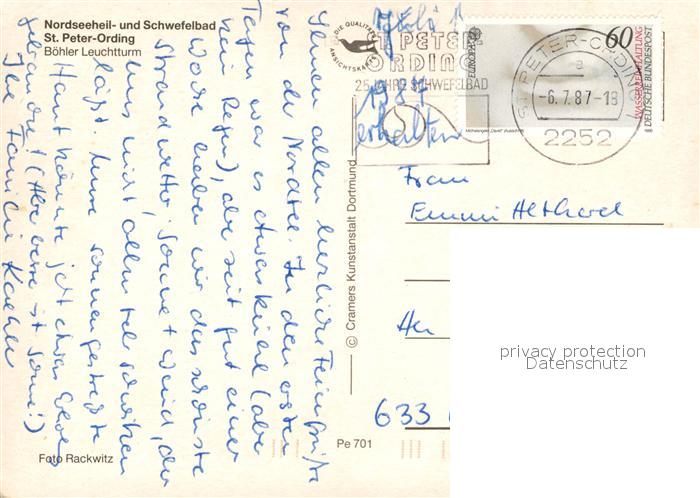 Nordseeheil- und Schwefelbad
St. Peter-Ording
Böhler Leuchtturm
Ihnen allen herzliche Feriengrüße
von der Nordsee. In den ersten
Tagen war es etwas kühl (aber
kein Regen), aber seit gut einer
Woche haben wir das schönste
Strandwetter. Sonne + Wind, der
uns nicht allzu sehr schwitzen
läßt. Unsere sonnengestreßte
Haut könnte jetzt etwas Schatten
gebrauchen! (Aber besser ist Sonne!)
Ihre Familie Kaehler
Foto Rackwitz
Pe 701
© Cramers Kunstanstalt Dortmund
DIE QUALITÄTS-
ANSICHTSKARTE
1987
erhalten
ST. PETER-
ORDING
25 JAHRE SCHWEFELBAD
EUROPA CEPT
60
WASSERERHALTUNG
DEUTSCHE BUNDESPOST
ST. PETER-ORDING 1
a
-6.7.87-18
2252
Frau
Emmi Althard
633
privacy protection
Datenschutz